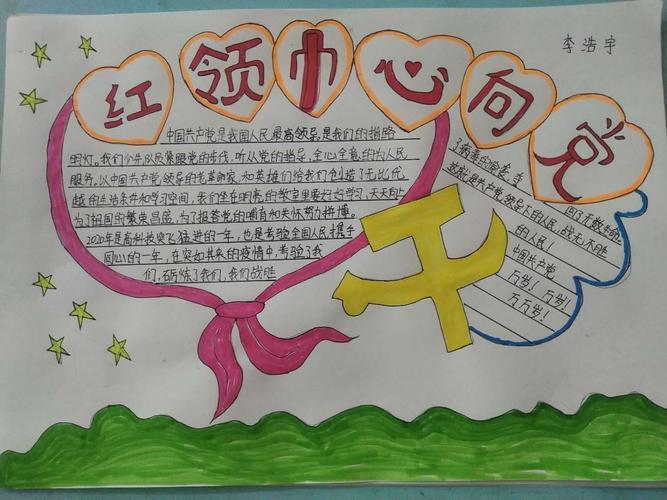 红领巾心向党
李浩宇
中国共产党是我国人民最高领导,是我们的指路
明灯。我们少先队员紧跟党的步伐,听从党的指导,全心全意的为人民
服务。以中国共产党领导的老革命家,和英雄们给我们创造了无比优
越的生活条件和学习空间,我们坐在明亮的教室里要好好学习,天天向上
为了祖国的繁荣昌盛,为了报答老师的哺育和关怀努力拼搏。
2020年是高科技突飞猛进的一年,也是考验全国人民携手
同心的一年,在突如其来的疫情中,考验了我
们,砺炼了我们,我们战胜
了病毒的
回了无数生命
这就是共产党领导下的人民,战无不胜
的人民!
中国共产党
万岁!万岁!
万万岁!